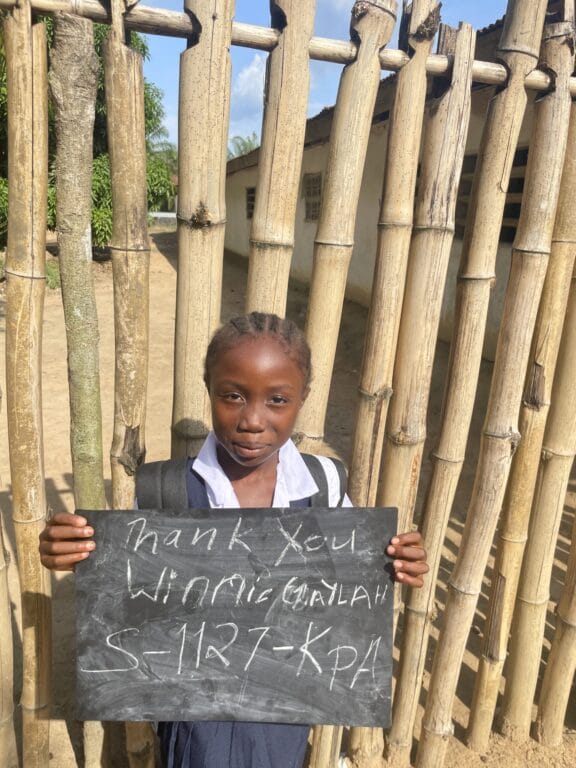 Thank You
Winmie GAYLAH
S-1127-KpA